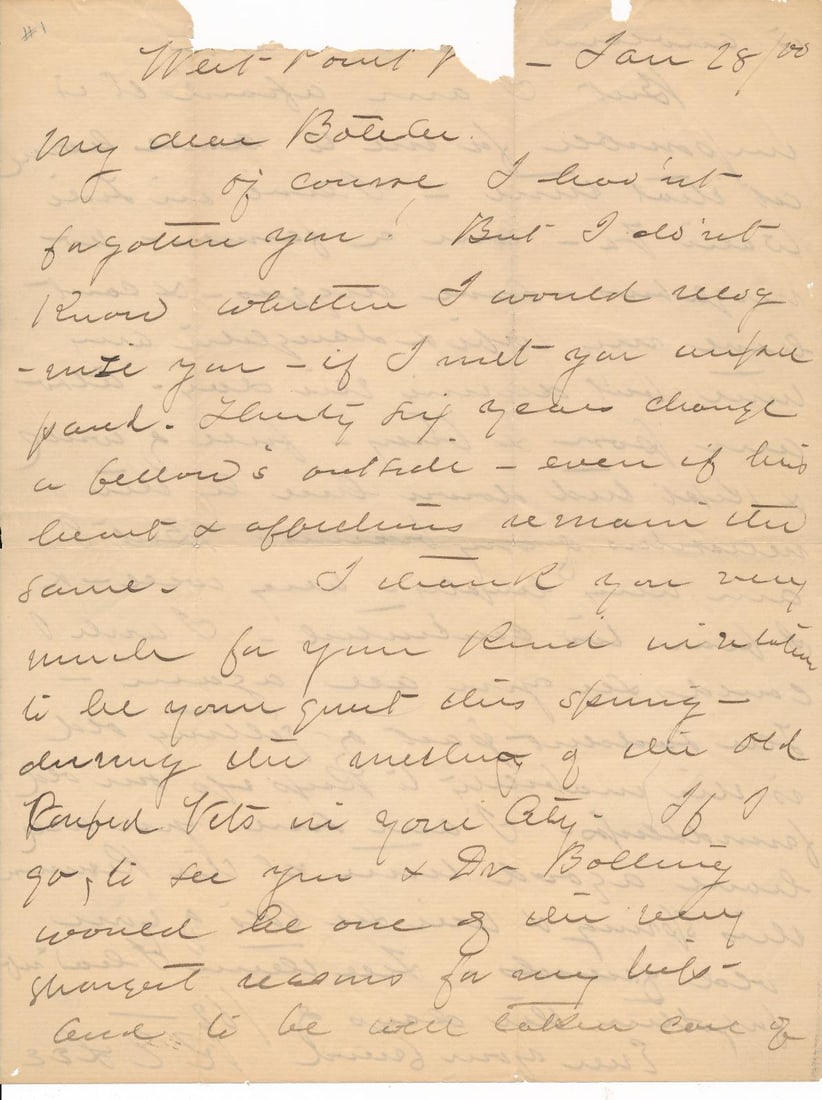 #1
West Point V — Jan 28/00
My dear Boteler.
Of course I hav'nt
forgotten you! But I do'nt
Know whether I would recog
-nize you – if I met you unpre
pared. Thirty six years change
a fellow's outside – even if his
heart & affections remain the
same. I thank you very
much for your kind invitation
to be your guest this spring –
during the meeting of the Old
Confed Vets in your City. If I
go, to see you & Dr Bolling
would be one of the very
strongest reasons for my visit –
And to be well taken care of